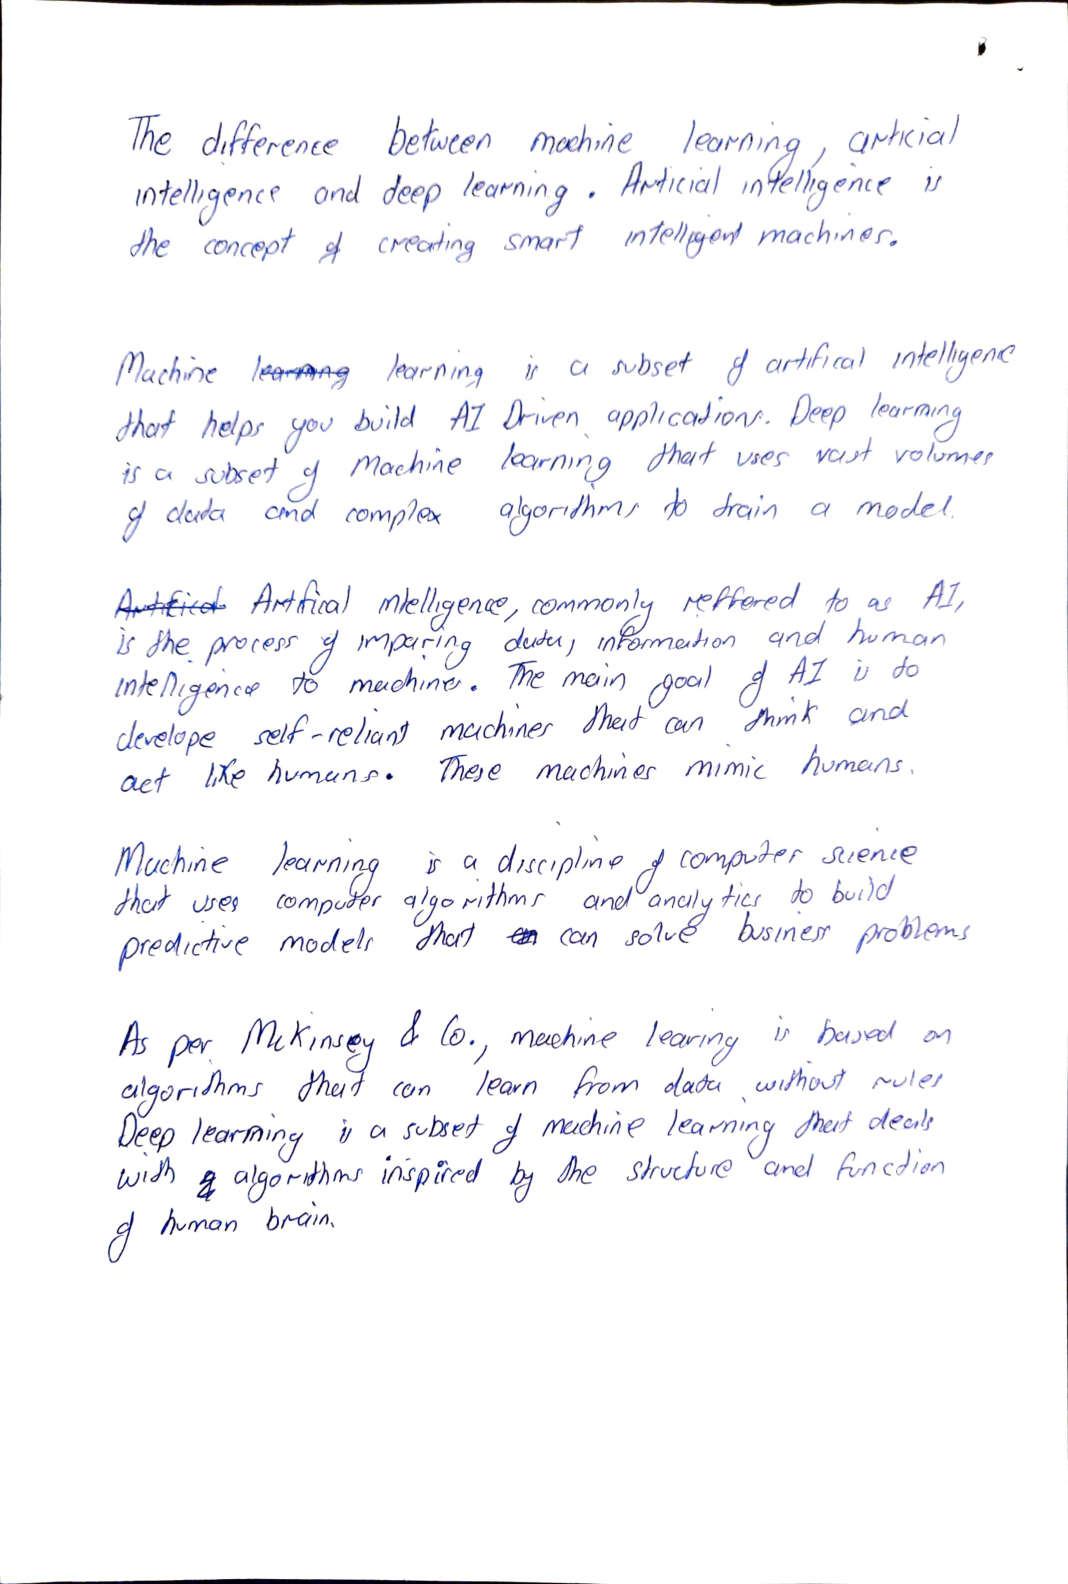 The difference between machine learning, articial
intelligence and deep learning. Articial intelligence is
the concept of creating smart intelligent machines.
Machine learning learning is a subset of artifical intelligence
that helps you build AI Driven applications. Deep learning
is a subset of Machine learning that uses vast volumes
of data and complex algorithms to train a model.
Artifical Artifical intelligence, commonly reffered to as AI,
is the process of imparing data, information and human
intelligence to machines. The main goal of AI is to
develope self-reliant machines that can think and
act like humans. These machines mimic humans.
Machine learning is a discipline of computer science
that uses computer algorithms and analytics to build
predictive models that can solve business problems
As per McKinsey & Co., machine learing is based on
algorithms that can learn from data without rules
Deep learning is a subset of machine learning that deals
with algorithms inspired by the structure and function
of human brain.